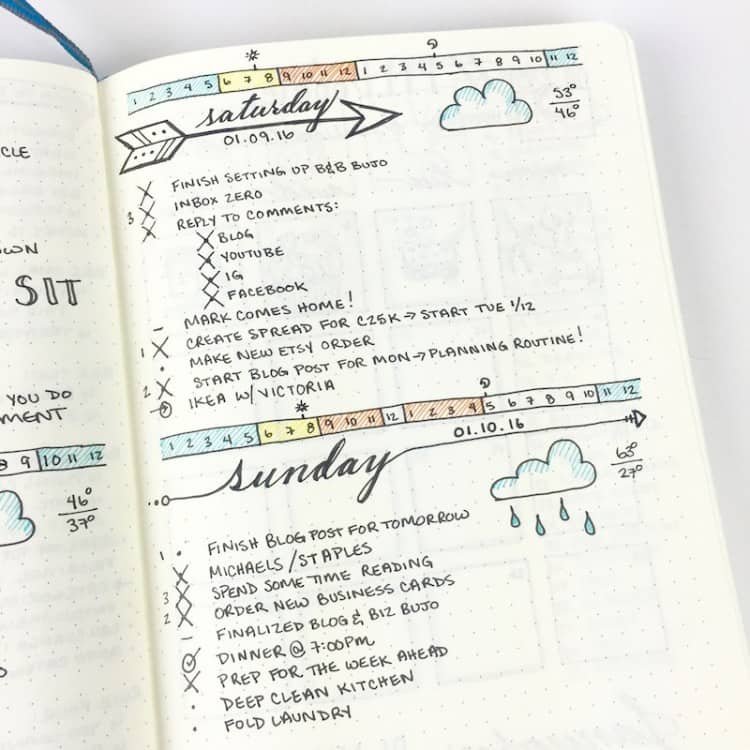 CLE
OWN
SIT
YOU DO
MENT
9 10 11 12
46°
37°
1 2 3 4 5 6 7 8 9 10 11 12 1 2 3 4 5 6 7 8 9 10 11 12
saturday
01.09.16
53°
46°
X FINISH SETTING UP B&B BUJO
3 X INBOX ZERO
X REPLY TO COMMENTS:
X BLOG
X YOUTUBE
X IG
X FACEBOOK
– MARK COMES HOME!
1 X CREATE SPREAD FOR C25K → START TUE 1/12
· MAKE NEW ETSY ORDER
2 X START BLOG POST FOR MON → PLANNING ROUTINE!
IKEA W/ VICTORIA
1 2 3 4 5 6 7 8 9 10 11 12 1 2 3 4 5 6 7 8 9 10 11 12
01.10.16
sunday
63°
27°
1 · FINISH BLOG POST FOR TOMORROW
X MICHAELS / STAPLES
3 X SPEND SOME TIME READING
2 X ORDER NEW BUSINESS CARDS
– FINALIZED BLOG & BIZ BUJO
DINNER @ 7:00PM
X PREP FOR THE WEEK AHEAD
· DEEP CLEAN KITCHEN
· FOLD LAUNDRY